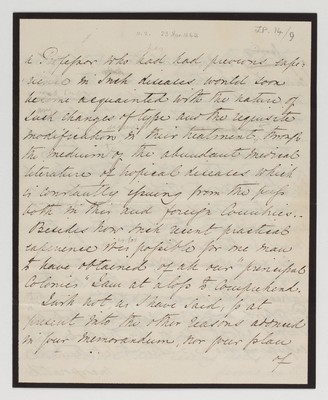 JP. 14/9
a Professor who had had previous expe-
rience in such diseases would soon
become acquainted with the nature of
such changes of type and the requisite
modification in their treatment, through
the medium of the abundant medical
literature of tropical diseases which
is constantly issuing from the press
both in this and foreign Countries.
Besides how such recent practical
experience was possible for one man
to have obtained of all our "principal
Colonies" I am at a loss to comprehend.
I wish not as I have said, to go at
present into the other reasons adduced
in your memorandum, nor your plan
of